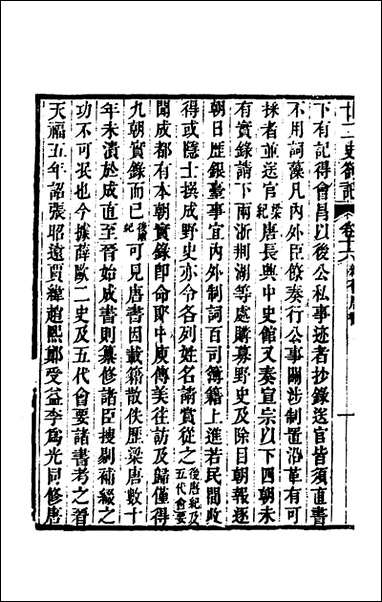 廿二史劄記 卷十六 新舊唐書 一
下有記得會昌以後公私事迹者抄錄送官皆須直書
不用詞藻凡內外臣僚奏行公事關涉制置沿革有可
採者並送官梁紀唐長興中史館又奏宣宗以下四朝未
有實錄請下兩浙荆湖等處購募野史及除目朝報逐
朝日歷銀臺事宜內外制詞百司簿籍上進若民間收
得或隱士撰成野史亦令各列姓名請賞從之後唐紀及五代會要
聞成都有本朝實錄即命郎中庾傳美往訪及歸僅得
九朝實錄而已後唐紀可見唐書因載籍散佚歷梁唐數十
年未潰於成直至晉始成書則纂修諸臣搜剔補綴之
功不可泯也今據薛歐二史及五代會要諸書考之晉
天福五年詔張昭遠賈緯趙熙鄭受益李爲光同修唐